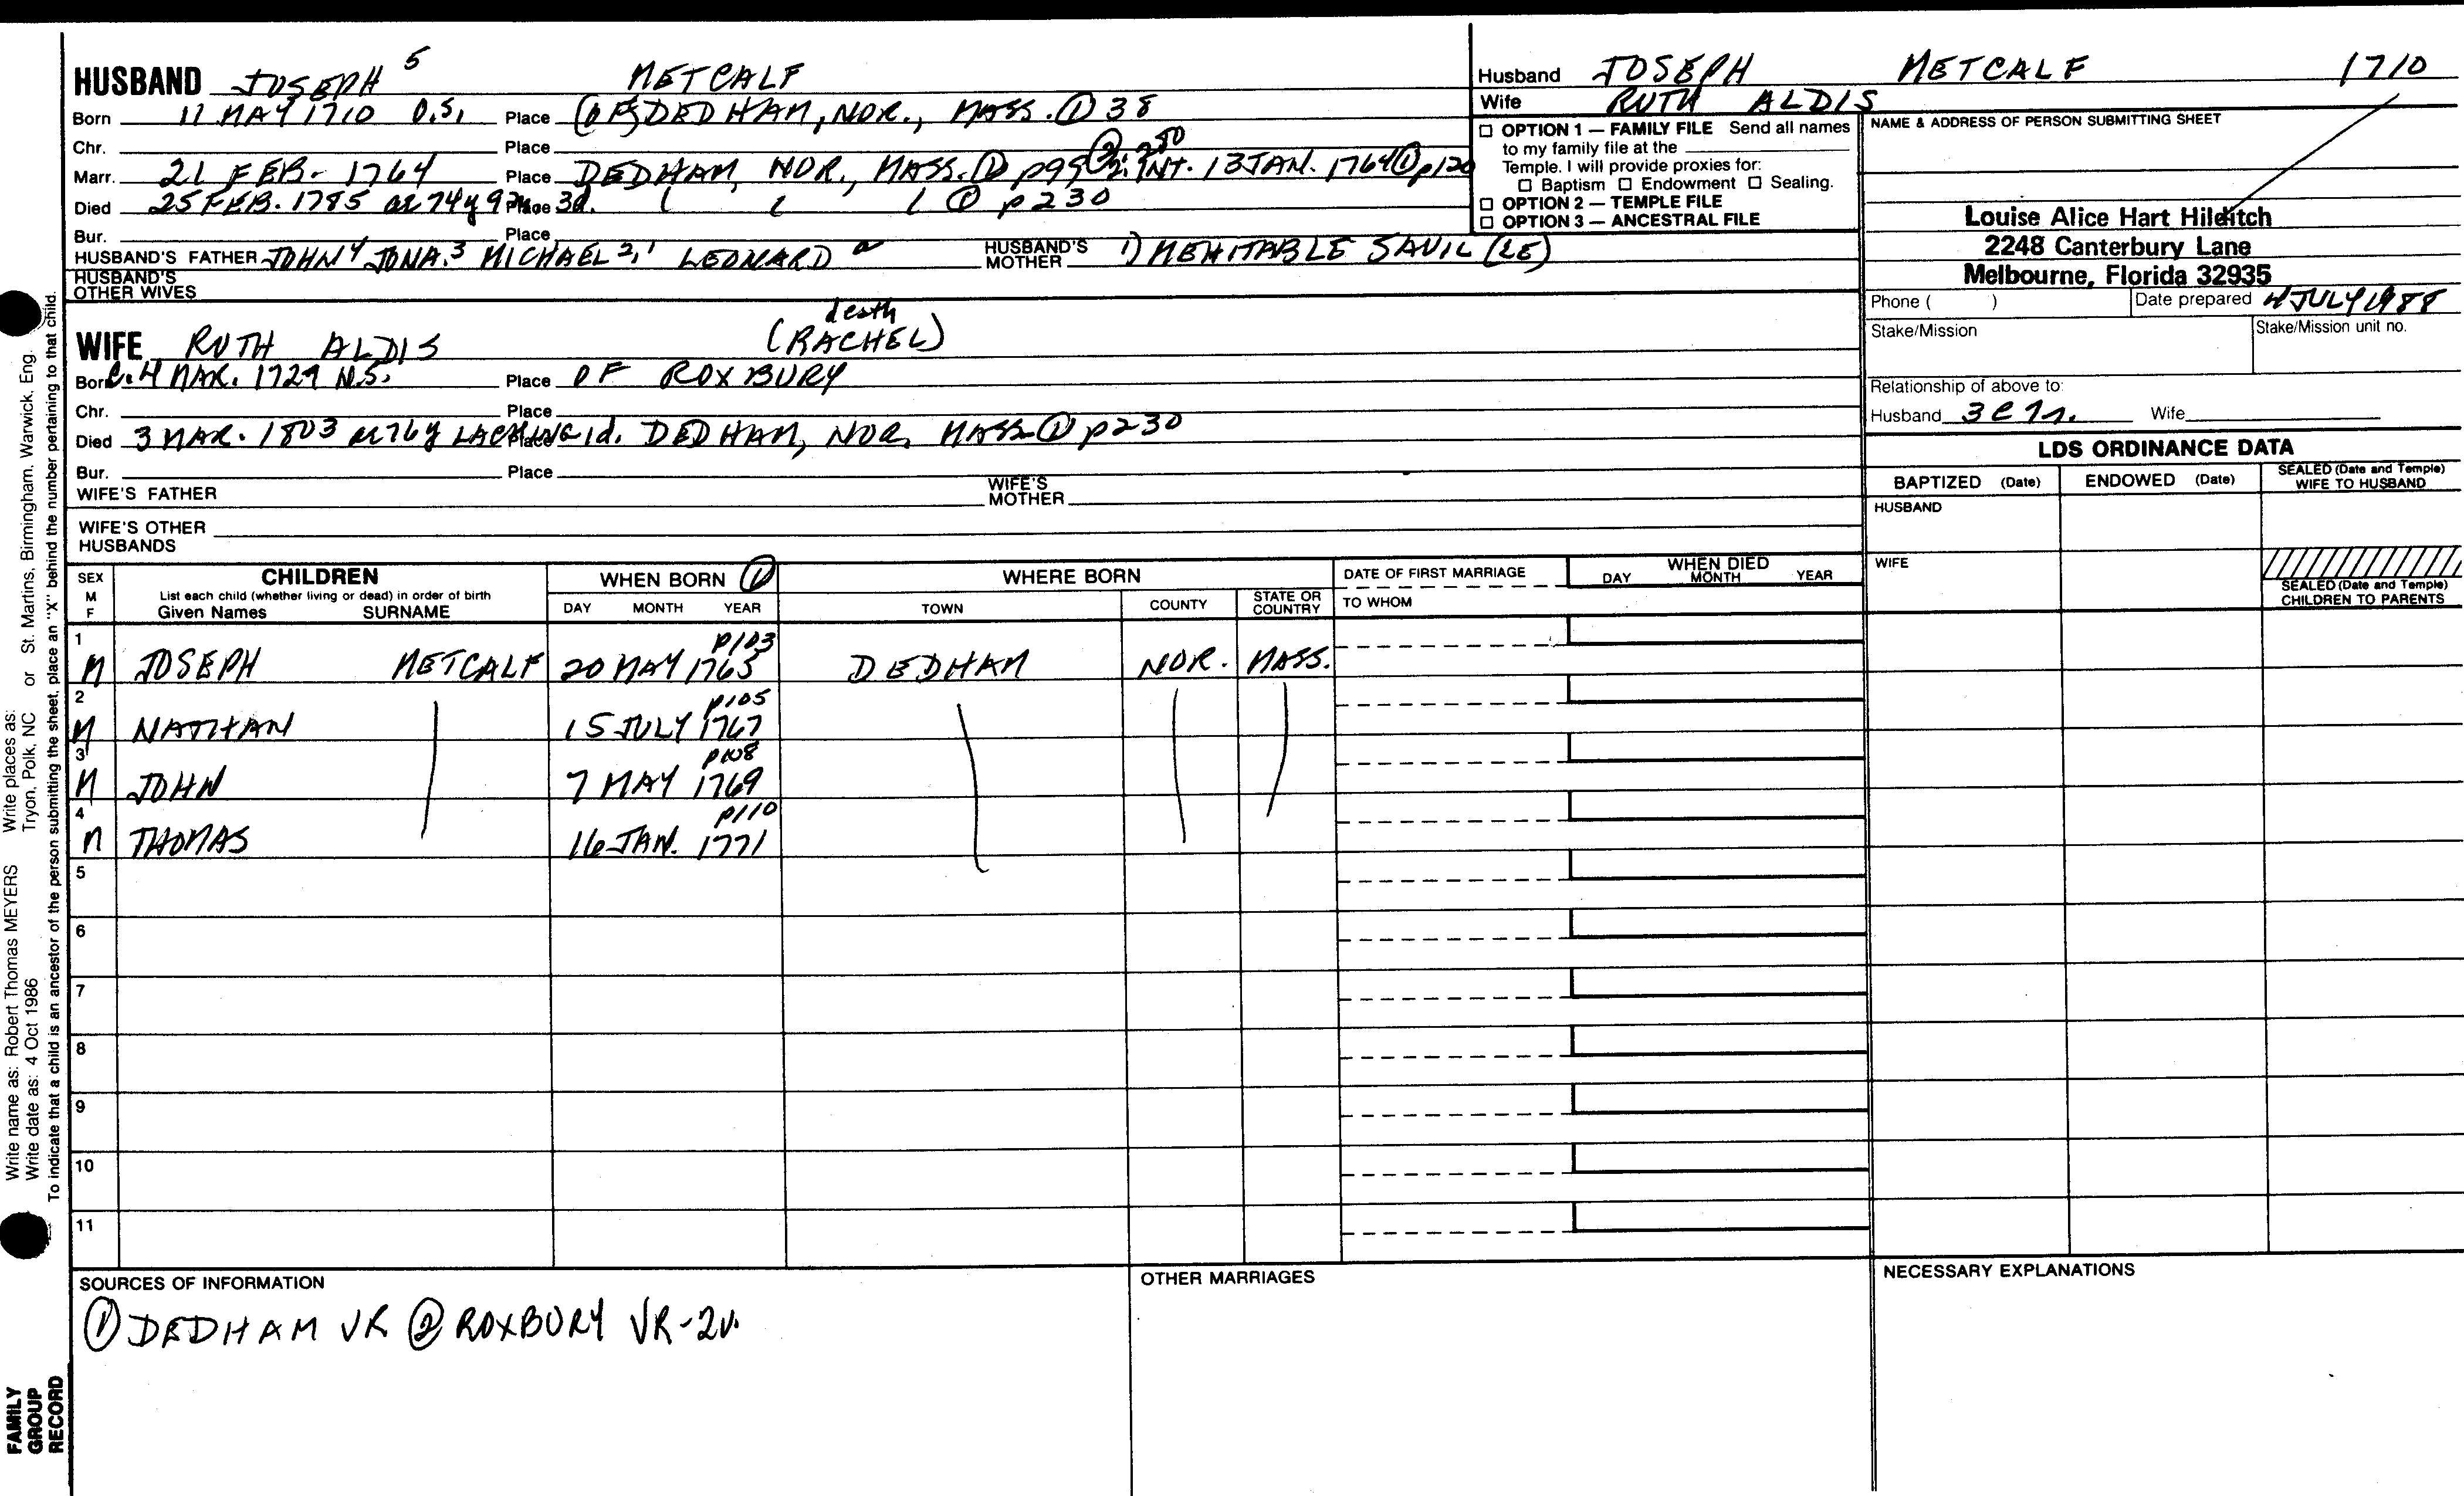 HUSBAND JOSEPH 5 METCALF
Born 11 MAY 1710 O.S. Place (OF) DEDHAM, NOR., MASS. ① 38
Chr. Place
Marr. 21 FEB. 1764 Place DEDHAM, NOR., MASS. ① p99 ② 2:280 INT. 13 JAN. 1764 ① p120
Died 25 FEB. 1785 ae 74y 9m 3d. Place ( ( ( ① p230
Bur. Place
HUSBAND'S FATHER JOHN 4 JONA. 3 MICHAEL 2,1 LEONARD a HUSBAND'S MOTHER 1) MEHITABLE SAVIL (LE)
HUSBAND'S OTHER WIVES
death
WIFE RUTH ALDIS (RACHEL)
Born C. 4 MAR. 1727 N.S. Place OF ROXBURY
Chr. Place
Died 3 MAR. 1803 ae 76y LACKING 1d. Place DEDHAM, NOR, MASS ① p230
Bur. Place
WIFE'S FATHER WIFE'S MOTHER
WIFE'S OTHER HUSBANDS
Husband JOSEPH METCALF 1710
Wife RUTH ALDIS
OPTION 1 — FAMILY FILE Send all names
to my family file at the
Temple. I will provide proxies for:
Baptism Endowment Sealing.
OPTION 2 — TEMPLE FILE
OPTION 3 — ANCESTRAL FILE
NAME & ADDRESS OF PERSON SUBMITTING SHEET
Louise Alice Hart Hilditch
2248 Canterbury Lane
Melbourne, Florida 32935
Phone ( ) Date prepared 4 JULY 1988
Stake/Mission Stake/Mission unit no.
Relationship of above to:
Husband Wife
LDS ORDINANCE DATA
BAPTIZED (Date) ENDOWED (Date) SEALED (Date and Temple) WIFE TO HUSBAND
HUSBAND
WIFE
SEALED (Date and Temple) CHILDREN TO PARENTS
SEX M F CHILDREN WHEN BORN ① WHERE BORN DATE OF FIRST MARRIAGE WHEN DIED
List each child (whether living or dead) in order of birth
Given Names SURNAME DAY MONTH YEAR TOWN COUNTY STATE OR COUNTRY TO WHOM DAY MONTH YEAR
p103
1 M JOSEPH METCALF 20 MAY 1765 DEDHAM NOR. MASS.
p105
2 M NATHAN 15 JULY 1767
p108
3 M JOHN 7 MAY 1769
p110
4 M THOMAS 16 JAN. 1771
5
6
7
8
9
10
11
SOURCES OF INFORMATION
① DEDHAM VR ② ROXBURY VR-2v.
OTHER MARRIAGES
NECESSARY EXPLANATIONS
Write name as: Robert Thomas MEYERS Write places as: St. Martins, Birmingham, Warwick, Eng.
Write date as: 4 Oct 1986 Tryon, Polk, NC or
To indicate that a child is an ancestor of the person submitting the sheet, place an "X" behind the number pertaining to that child.
FAMILY
GROUP
RECORD